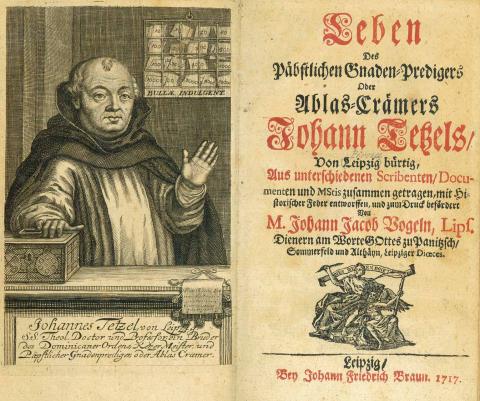 BULLÆ INDULGENT.
Johannes Tetzel von Leipzig
SS. Theol. Doctor und Professor ein Brüder
des Dominicaner-Ordens, Ketzer Meister, und
Päpstlicher Gnadenprediger oder Ablas Cramer.
Leben
Des
Päbstlichen Gnaden-Predigers
Oder
Ablas-Crämers
Johann Tetzels/
Von Leipzig bürtig,
Aus unterschiedenen Scribenten/Docu-
menten und MStis zusammen getragen, mit Hi-
storischer Feder entworffen, und zum Druck befördert
Von
M. Johann Jacob Vogeln, Lips.
Dienern am Worte GOttes zu Panitzsch/
Sommerfeld und Althäyn, Leipziger Diœces.
Leipzig/
Bey Johann Friedrich Braun. 1717.